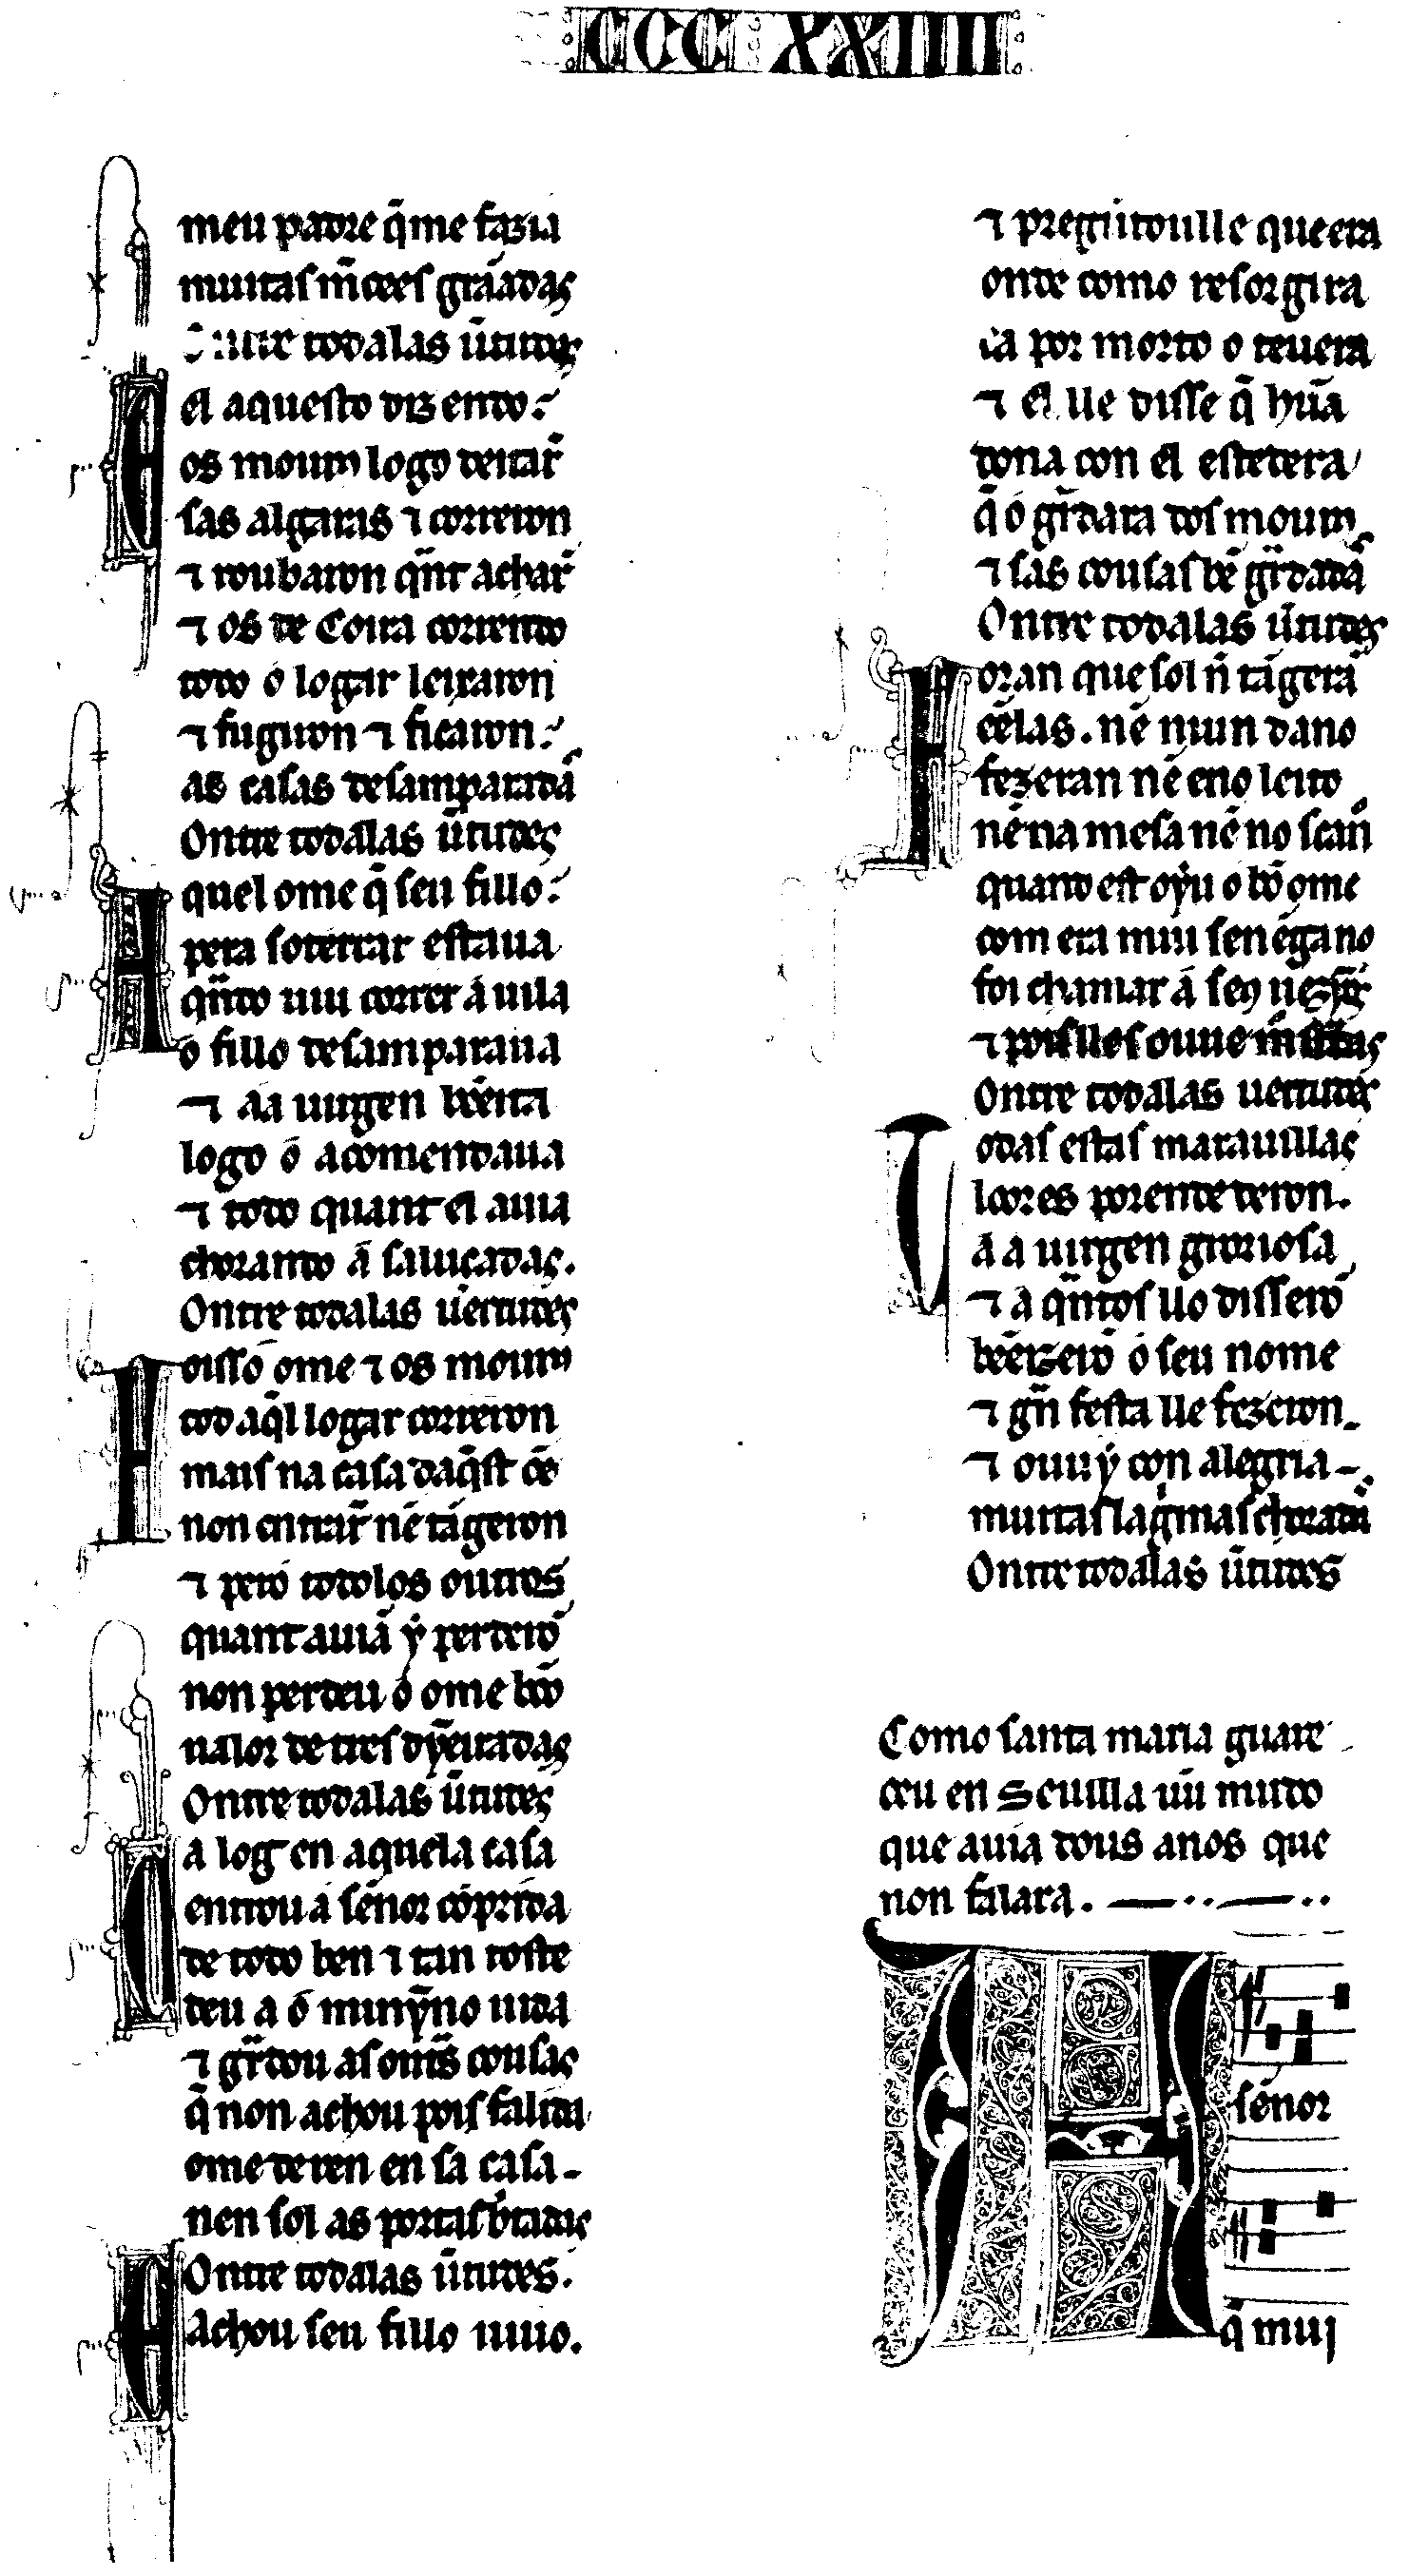 CCC XXIIII
meu padre q̄ me fazia
muitas m̄cees grãadas
Ontre todalas ũtudes
E el aquesto dizendo:
os mouros logo deitar̄
sas algaras ⁊ correron
⁊ roubaron q̄nt achar̄
⁊ os de Coira correndo
todo o logar leixaron
⁊ fugiron ⁊ ficaron:
as casas desamparadã
Ontre todalas ũtudes
Aquel ome q̄ seu fillo:
pera soterrar estaua
q̄ndo uiu correr á uila
o fillo desamparaua
⁊ áá uirgen bẽeita
logo ó acomendaua
⁊ todo quant el auia
chorando á saluçadas.
Ontre todalas uertudes
Foisso ome ⁊ os mouros
tod aq̄l logar correron
mais na casa daq̄st ome
non entrar̄ nē tãgeron
⁊ pero todolos outros
quant auiã ẏ perderõ
non perdeu ó ome bõo
ualor de tres dỹeiradas
Ontre todalas ũtudes
Ca log en aquela casa
entrou á sẽnor cõprida
de todo ben ⁊ tan toste
deu a ó minỹno uida
⁊ gr̄dou as outras cousas
q̄ non achou pois falida
ome de ren en sa casa-
nen sol as portas britadas
Ontre todalas ũtudes.
E achou seu fillo uiuo.
⁊ pregũtoulle que era
onde como resorgira
ca por morto o teuera
⁊ el lle disse q̄ hũa
dona con el esteuera
q̄ ó gr̄dara dos mouros
⁊ sas cousas bē gr̄dadã
Ontre todalas ũtudes
Foran que sol ñ tãgerã
cēlas. nē niun dano
fezeran nē eno leito
nē na mesa nē no scano
quand est oẏu o bõo ome
com era mui sen engano
foi chamar á seus
⁊ pois lles ouue
Ontre todalas uertudes
Todas estas marauillas
lóores porende deron.
á a uirgen groriosa
⁊ a q̄ntos llo disserõ
bẽeizerõ ó seu nome
⁊ gñ festa lle fezeron.
⁊ ouu ẏ con alegria-
muitas lagrimas choradas
Ontre todalas ũtudes
Como santa maria guare
ceu en Seuilla uũ mudo
que auia dous anos que
non falara.
A sẽnor
q̄ mui